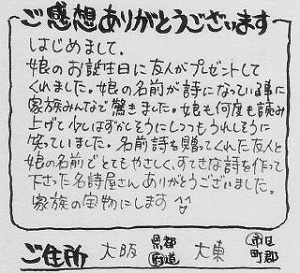 ご感想ありがとうございます
はじめまして。
娘のお誕生日に友人がプレゼントして
くれました。娘の名前が詩になっている事に
家族みんなで驚きました。娘も何度も読み
上げて少しはずかしそうにしつつもうれしそうに
笑っていました。名前詩を贈ってくれた友人と
娘の名前でとてもやさしく、すてきな詩を作って
下さった名詩屋さんありがとうございました。
家族の宝物にします
ご住所 大阪 都道府県 大東 市区町郡